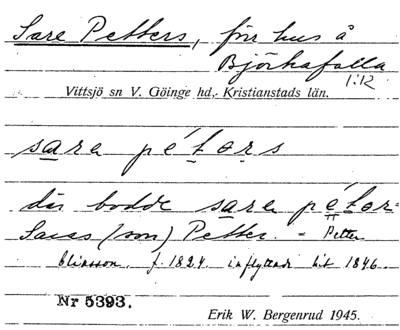 Sare Petters, förr hus å
Björkafalla
1:12
Vittsjö sn V. Göinge hd, Kristianstads län.
sare pétors
där bodde sare pétor=
Saras (son) Petter. = Petter
Eliasson, f. 1824. inflyttade hit 1846.
Nr 5393.
Erik W. Bergenrud 1945.